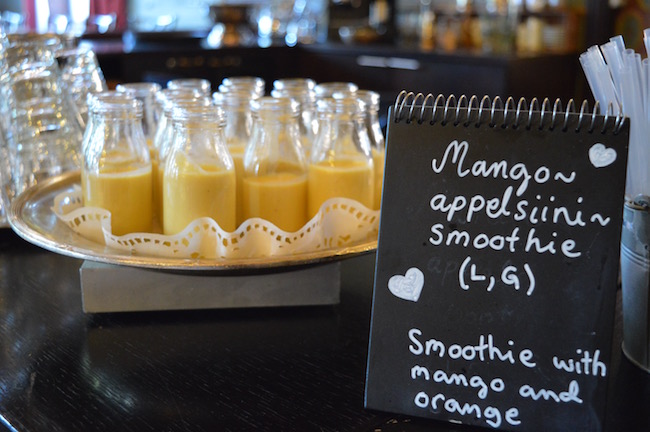 Mango~
appelsiini~
smoothie
(L, G)
Smoothie with
mango and
orange